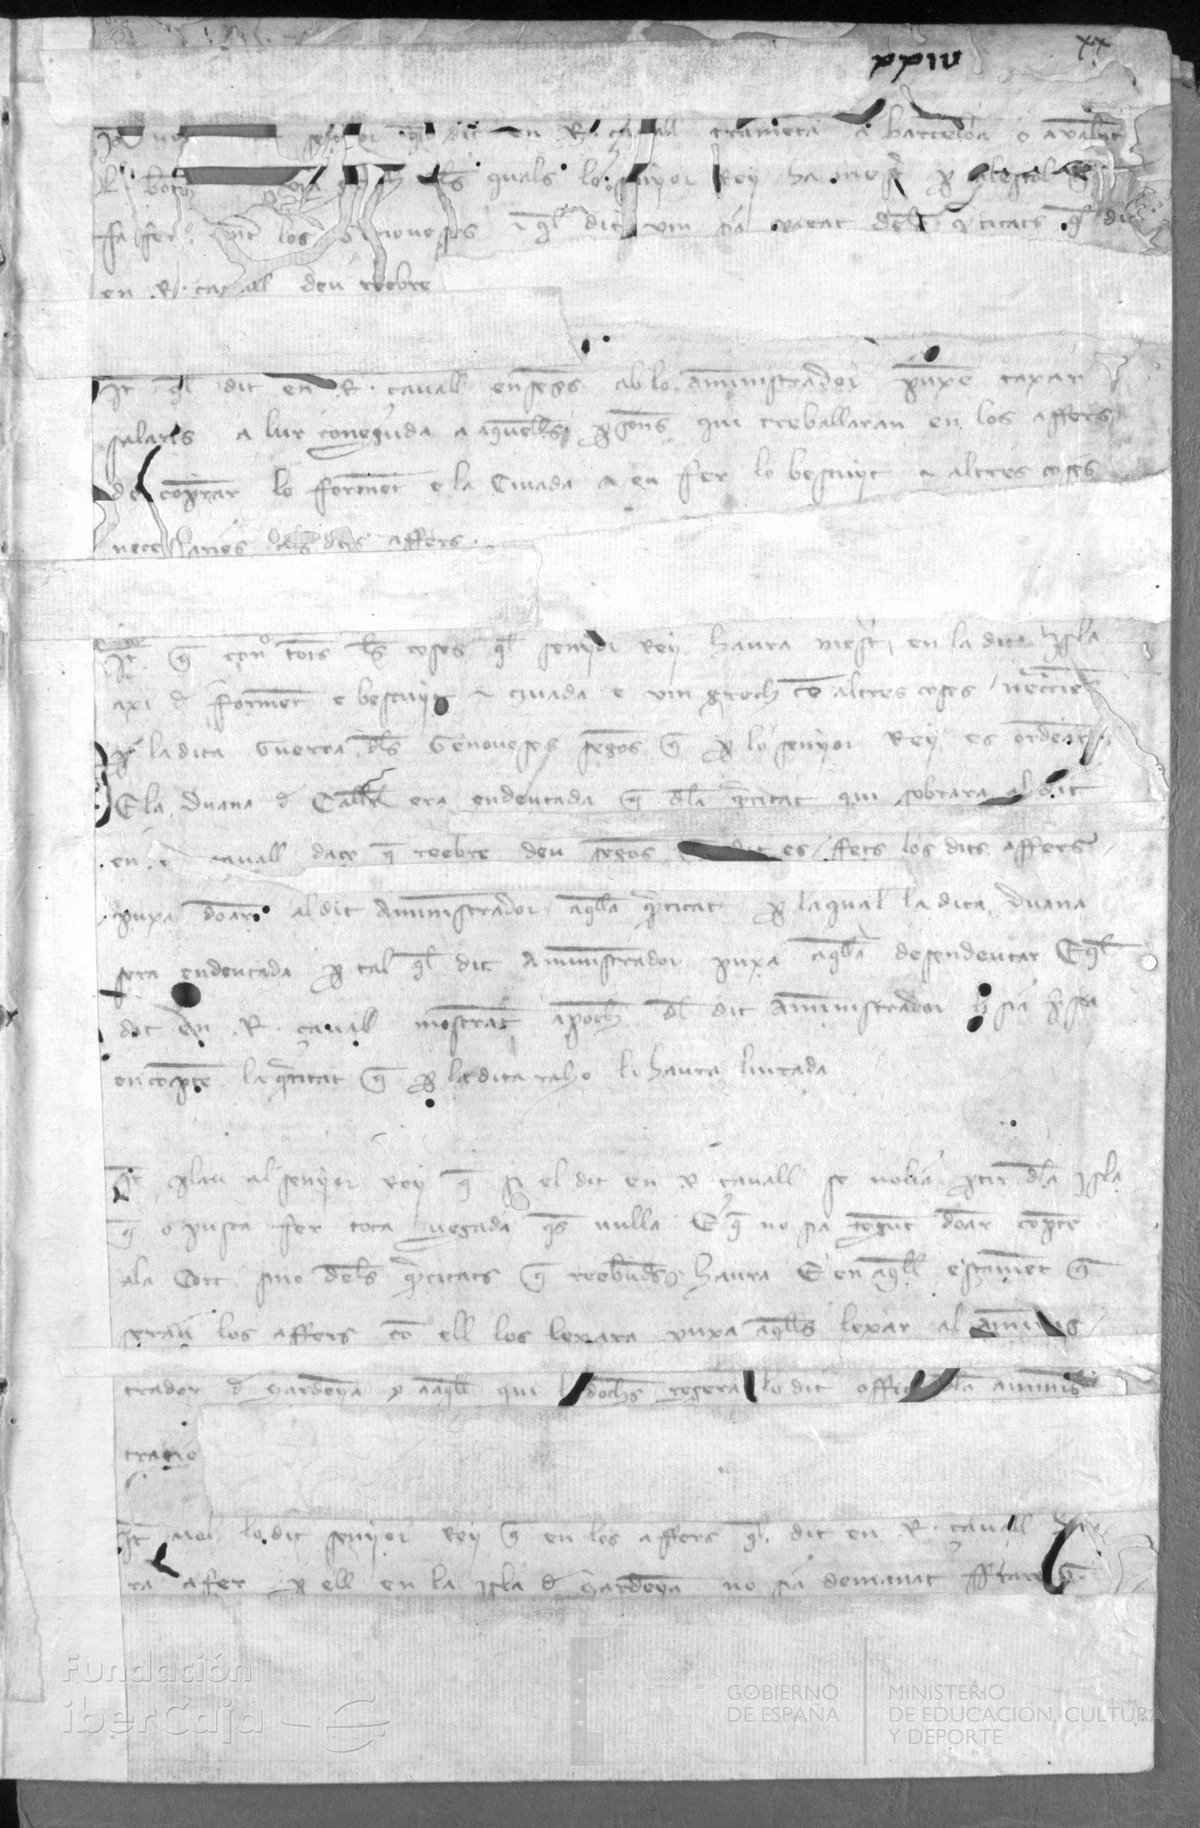 xxiiii
xx
senyor quel dit en R. cavall trameta a barcelona o a valencia
quals lo senyor Rey ha mester per
fa fer contra los Genoveses quel dit vin sia pagat deles quantitats quel dit
en R. cavall deu reebre
It quel dit en R. cavall ensemps ab lo administrador puxe taxar
salaris a lur coneguda a aquelles persones qui treballaran en los affers
de comprar lo forment e la Civada e en fer lo bescuyt e altres coses
necessaries als dits affers.
It que totes les coses quel senyor Rey haura mester en la dita Isla
axi de forment e bescuyt e civada e vin grech com altres coses necessaries
per la dita Guerra dels Genoveses segons que per lo senyor Rey es ordenat
E la Duana de Caller era endeutada que dela quantitat qui sobrara al dit
en R. cavall daço que reebre deu segons dit es fets los dits affers
puxa donar al dit Administrador aquella quantitat per laqual la dita Duana
sera endeutada per tal quel dit Administrador puxa aquella desendeutar E quel
dit en .R. cavall mostrant apocha del dit Administrador li sia presa
en compte la quantitat que per la dita raho li haura liurada
It plau al senyor Rey que si el dit en R cavall se volia partir dela Isla
que o pusca fer tota vegada ques vulla E que no sia tengut donar compte
ala Cort sino deles quantitats que reebudes haura E en aquell estament que
seran los affers com ell los lexara puxa aquells lexar al adminis
trador de Sardenya o aaquell qui ladochs regera lo dit offici dela adminis
tracio
It vol lo dit senyor Rey que en los affers quel dit en R. cavall hau
ra a fer per ell en la Isla de Sardenya no sia demanat
Fundación
iberCaja
GOBIERNO
DE ESPAÑA
MINISTERIO
DE EDUCACIÓN, CULTURA
Y DEPORTE